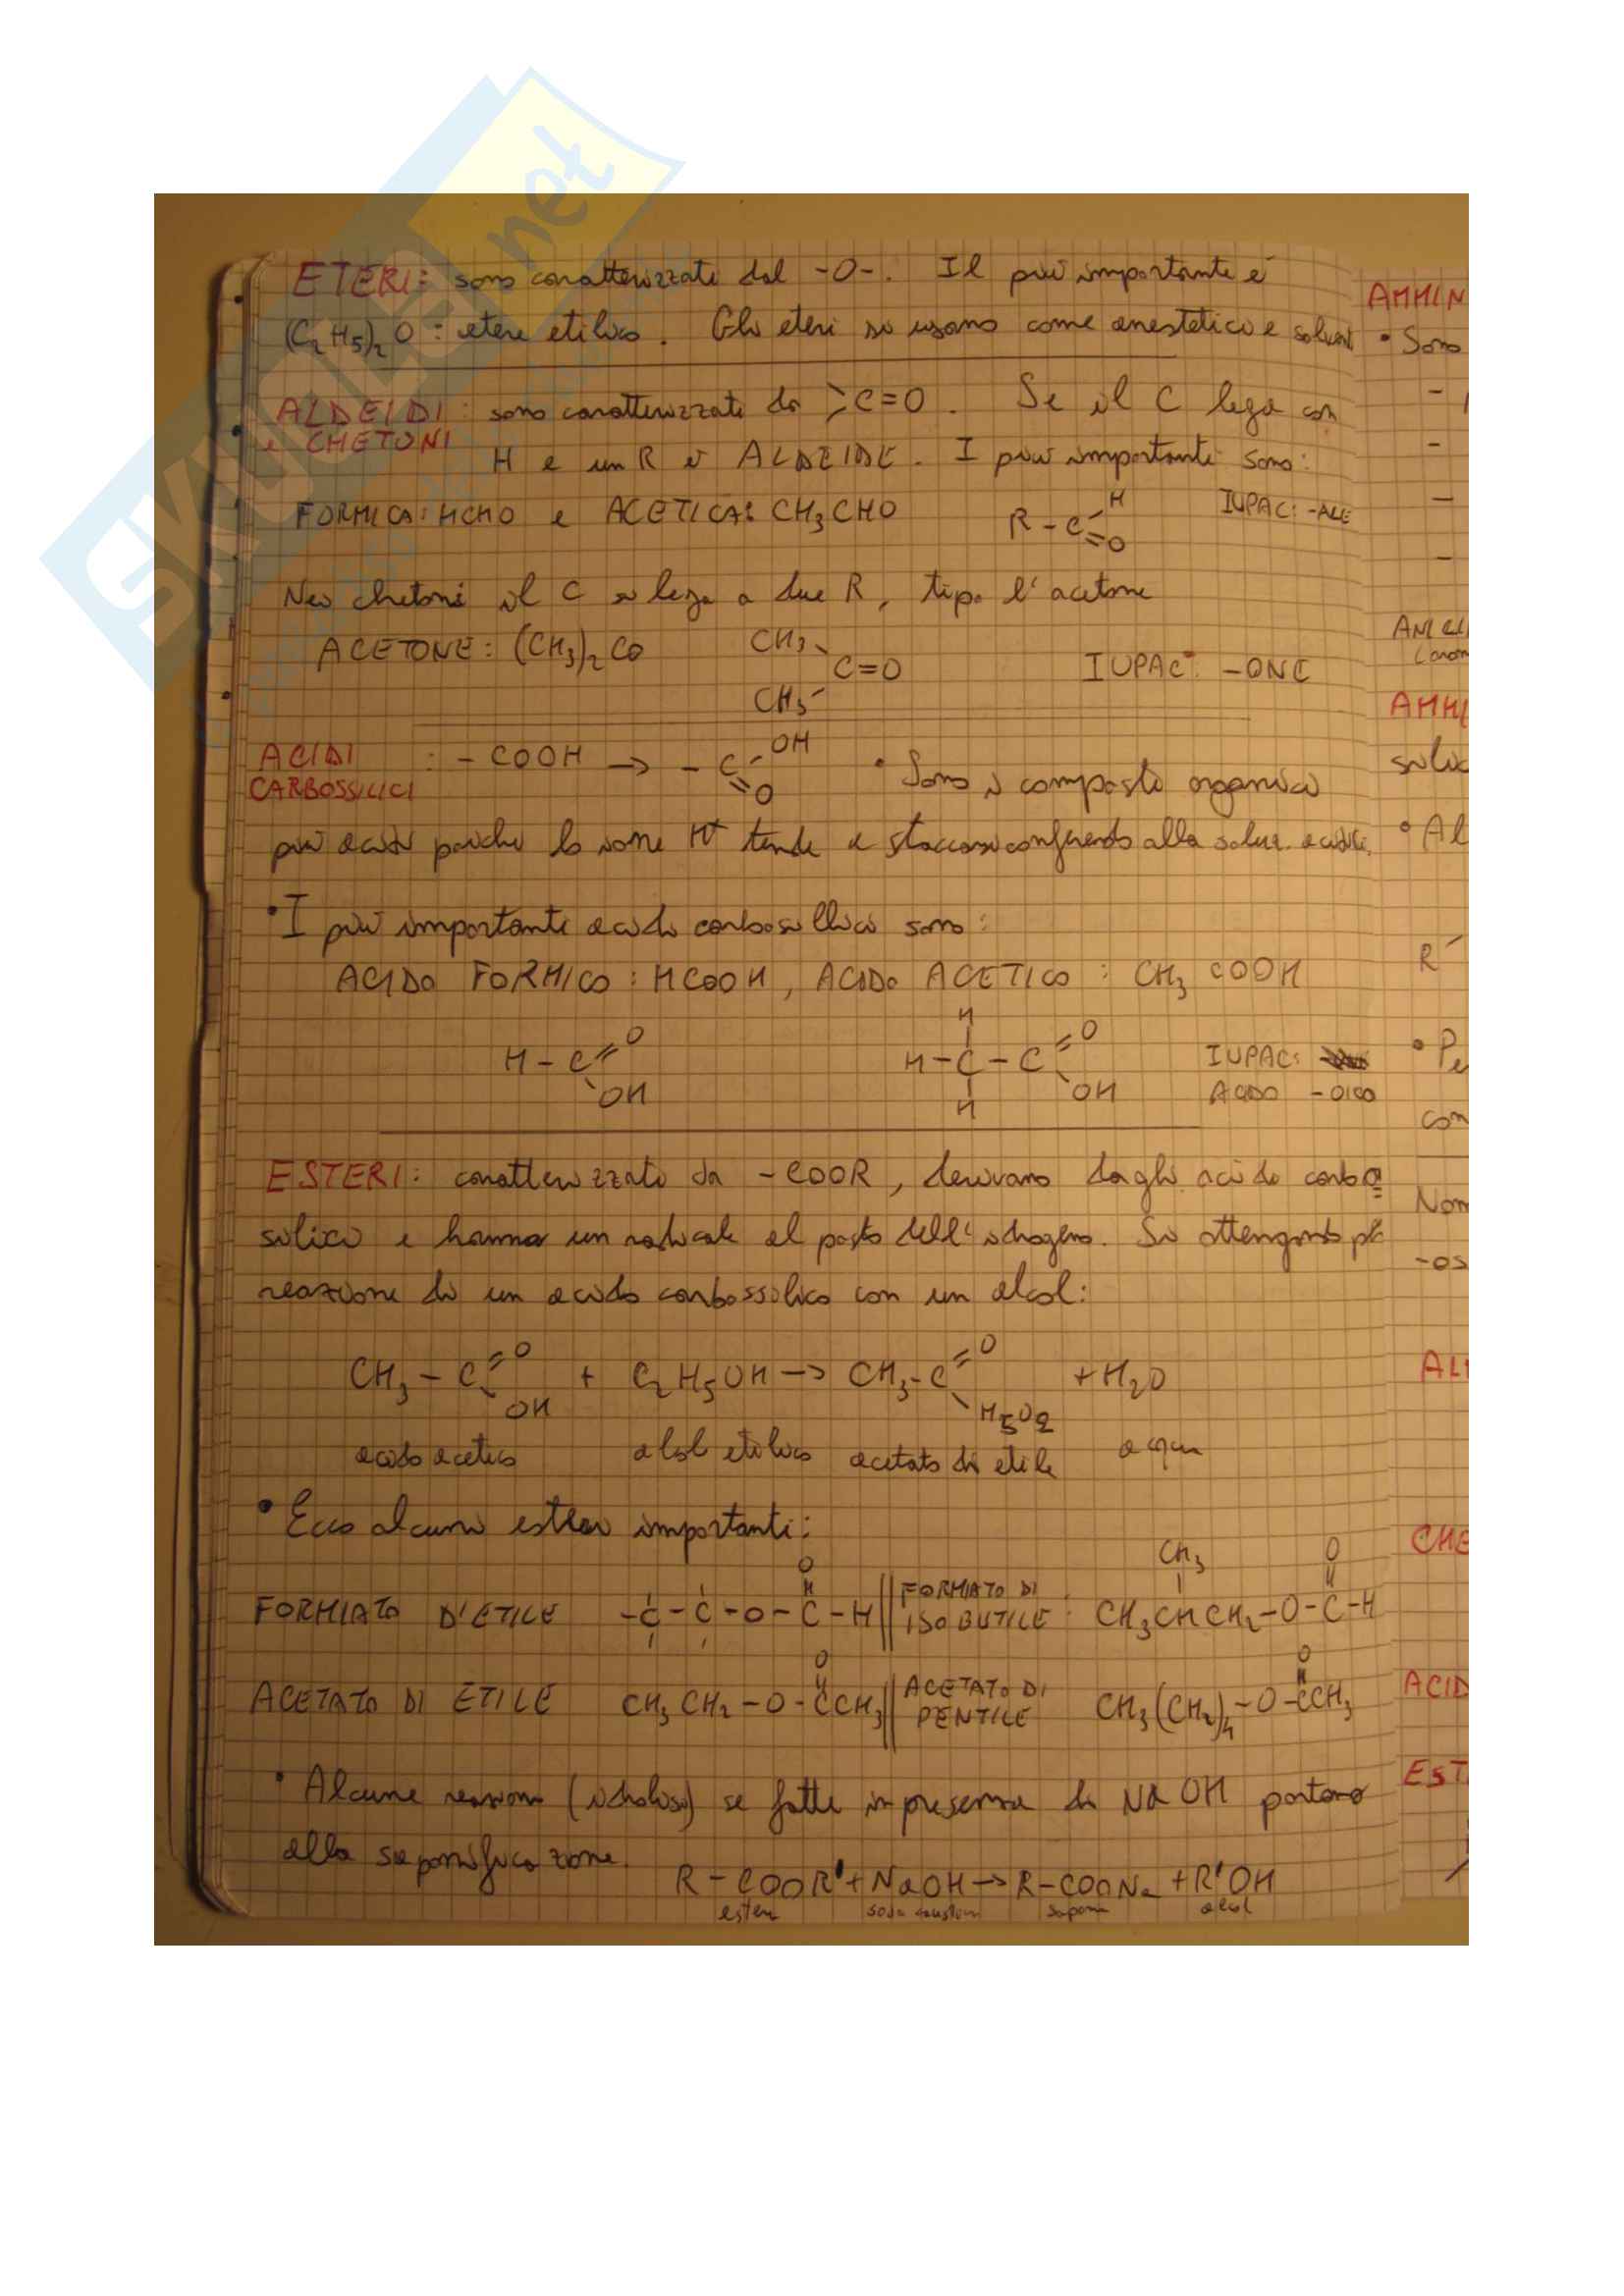 SKUOLA.net
ETERI: sono caratterizzati dal -O-. Il più importante è
(C₂H₅)₂O: etere etilico. Gli eteri si usano come anestetici e solventi
ALDEIDI e CHETONI: sono caratterizzati da >C=O. Se il C lega con
H e un R è ALDEIDE. I più importanti sono:
FORMICA: HCHO e ACETICA: CH₃CHO R-C H =O IUPAC: -ALE
Nei chetoni il C si lega a due R, tipo l'acetone
ACETONE: (CH₃)₂CO CH₃ CH₃ C=O IUPAC: -ONE
ACIDI CARBOSSILICI: -COOH → -C OH =O • Sono i composti organici
più acidi poiché lo ione H⁺ tende a staccarsi conferendo alla soluz. acidità.
• I più importanti acidi carbossilici sono:
ACIDO FORMICO: HCOOH, ACIDO ACETICO: CH₃COOH
H-C =O OH H-C-C H H =O OH IUPAC: ACIDO -OICO
ESTERI: caratterizzati da -COOR, derivano dagli acidi carbos
silici e hanno un radicale al posto dell'idrogeno. Si ottengono
reazione di un acido carbossilico con un alcol:
CH₃-C =O OH + C₂H₅OH → CH₃-C =O H₅O₂ + H₂O
acido acetico alcol etilico acetato di etile acqua
• Ecco alcuni esteri importanti:
FORMIATO D'ETILE -C-C-O-C-H O || FORMIATO DI ISOBUTILE: CH₃CHCH₂-O-C-H CH₃ O
ACETATO DI ETILE CH₃CH₂-O-CCH₃ O || ACETATO DI PENTILE CH₃(CH₂)₄-O-CCH₃ O
• Alcune reazioni (idrolisi) se fatte in presenza di NaOH portano
alla saponificazione.
R-COOR'+NaOH→R-COONa+R'OH
estere soda caustica sapone alcol
AMMIN
• Sono
-
-
-
-
AMM
• Al
R
• Pe
con
Nom
-OS
ALD
CHE
ACID
EST